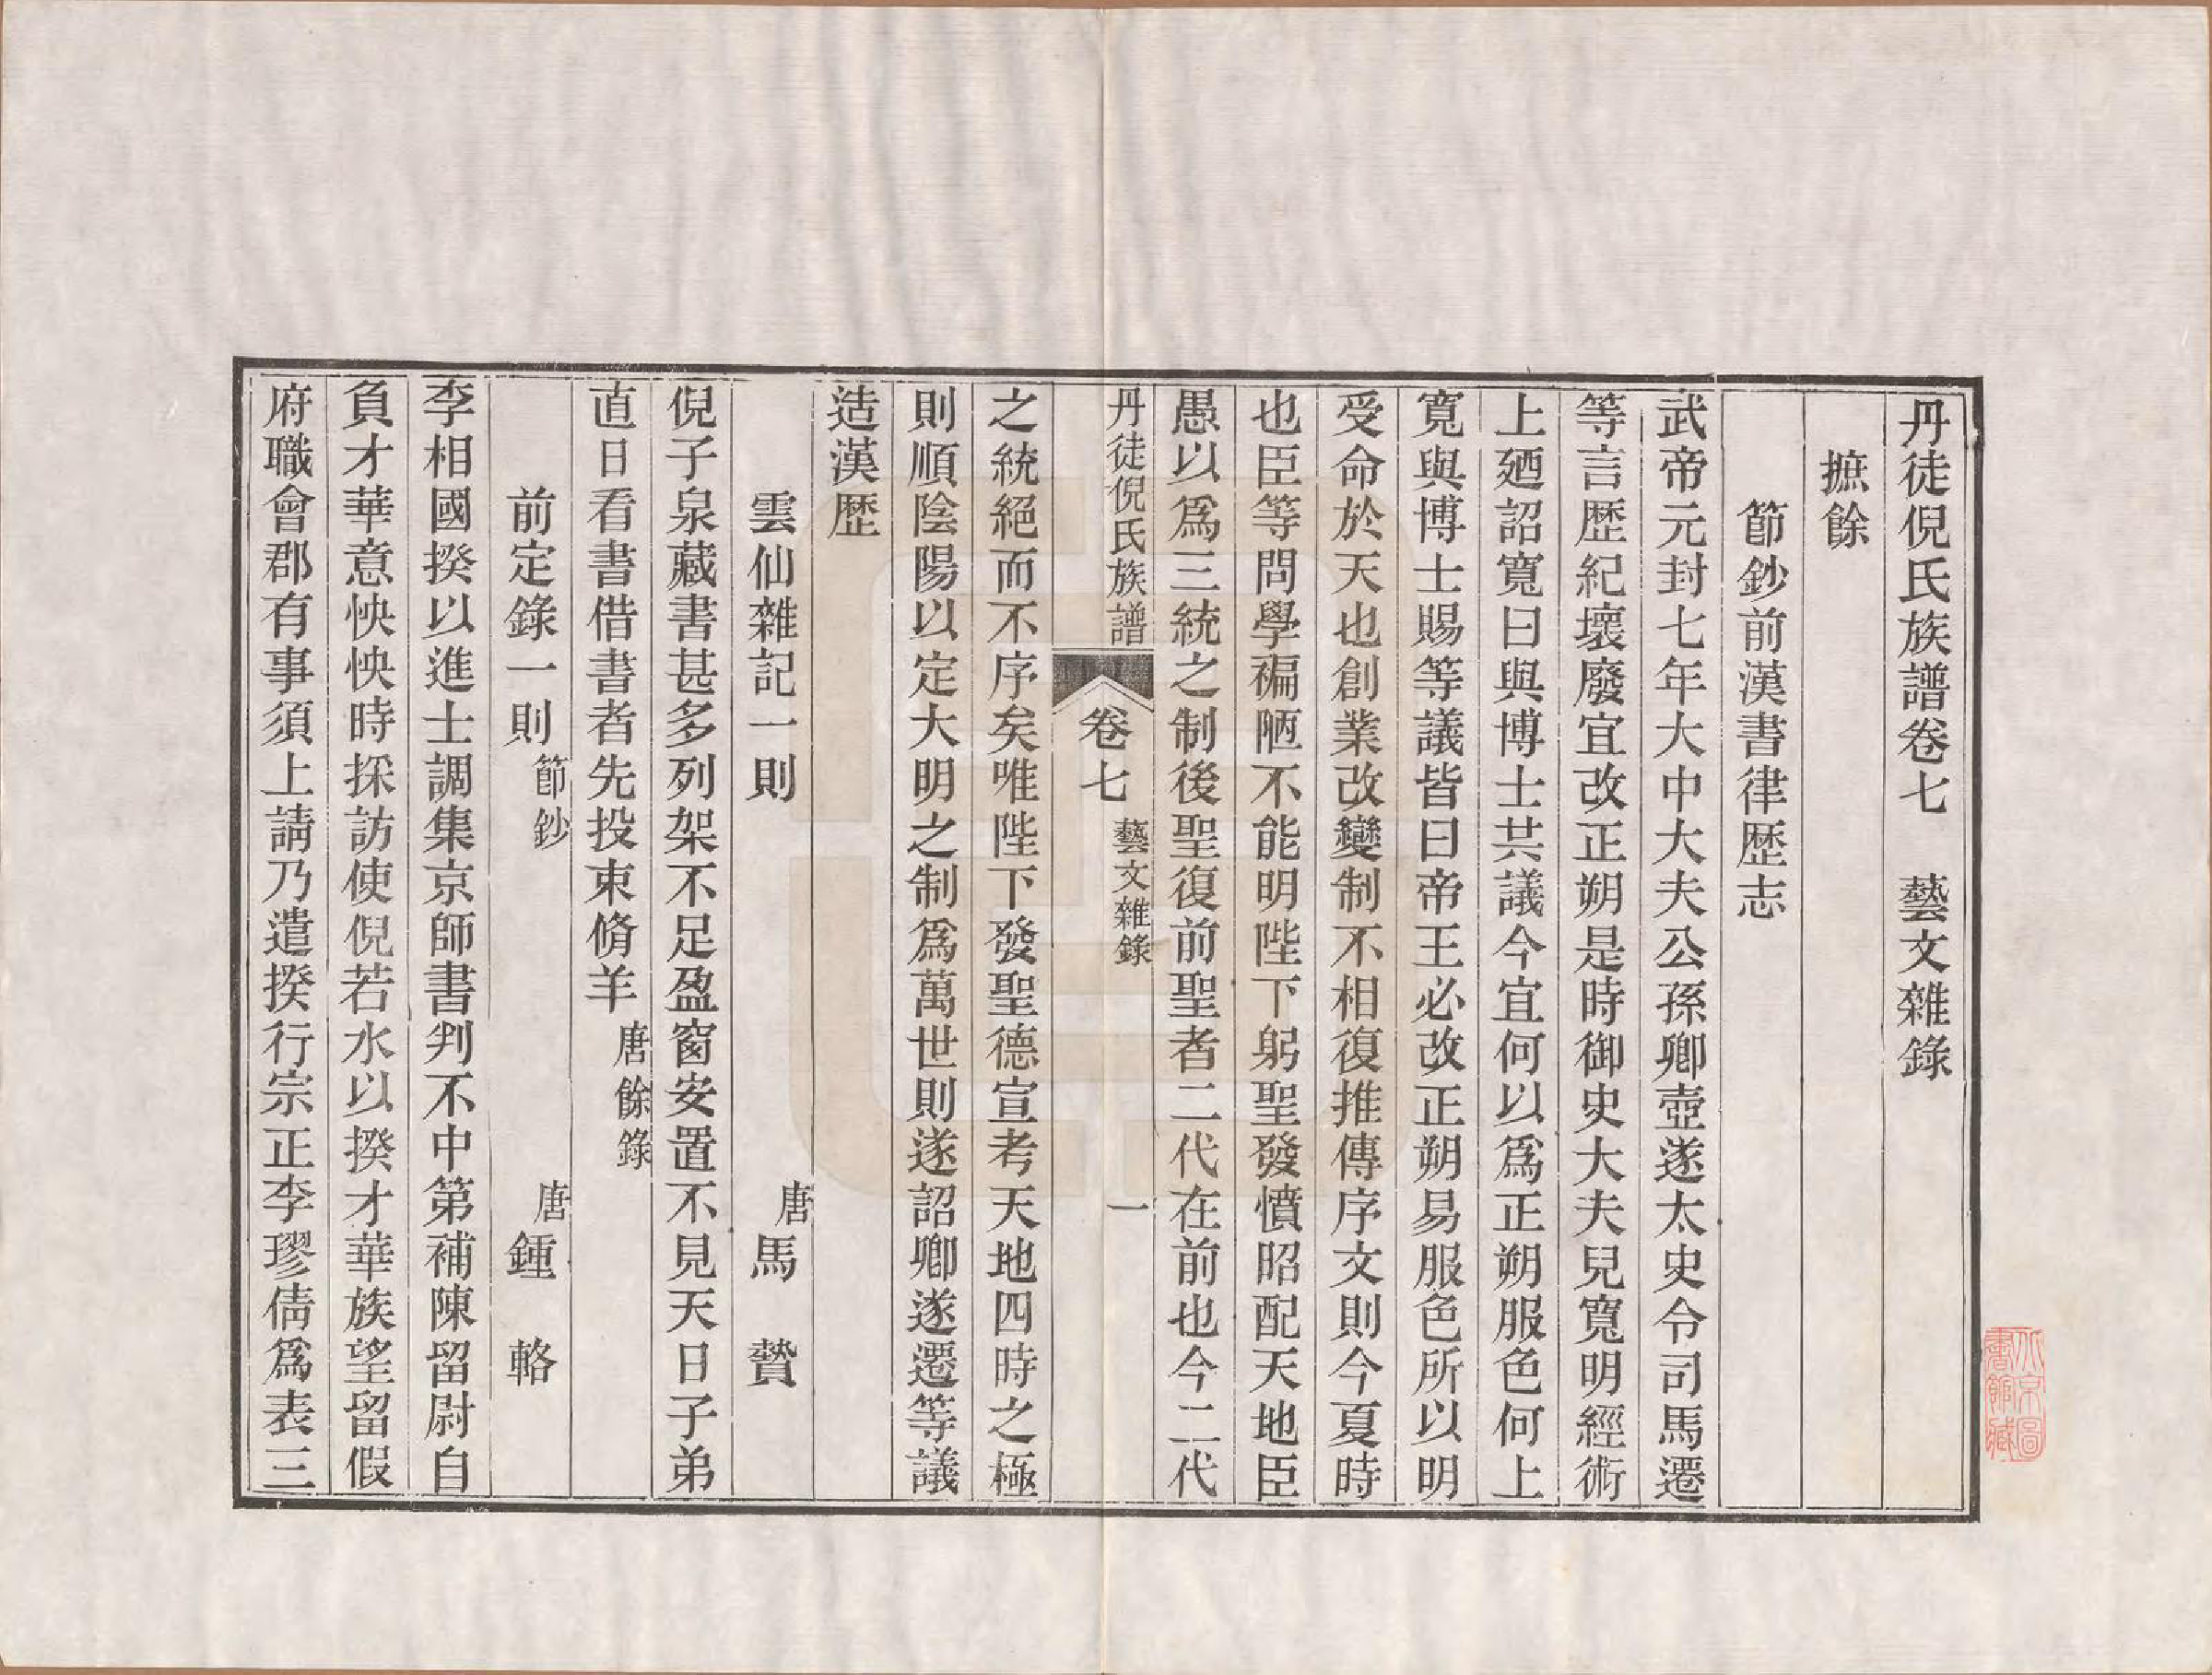 丹徒倪氏族譜卷七　藝文雜錄
摭餘
節鈔前漢書律歷志
武帝元封七年大中大夫公孫卿壺遂太史令司馬遷
等言歷紀壞廢宜改正朔是時御史大夫兒寬明經術
上廼詔寬曰與博士共議今宜何以爲正朔服色何上
寬與博士賜等議皆曰帝王必改正朔易服色所以明
受命於天也創業改變制不相復推傳序文則今夏時
也臣等問學褊陋不能明陛下躬聖發憤昭配天地臣
愚以爲三統之制後聖復前聖者二代在前也今二代
丹徒倪氏族譜　卷七　藝文雜錄　一
之統絕而不序矣唯陛下發聖德宣考天地四時之極
則順陰陽以定大明之制爲萬世則遂詔卿遂遷等議
造漢歷
雲仙雜記一則　唐馬贄
倪子泉藏書甚多列架不足盈窗安置不見天日子弟
直日看書借書者先投束脩羊　唐餘錄
前定錄一則　節鈔　唐鍾輅
李相國揆以進士調集京師書判不中第補陳留尉自
負才華意怏怏時採訪使倪若水以揆才華族望留假
府職會郡有事須上請乃遣揆行宗正李璆倩爲表三